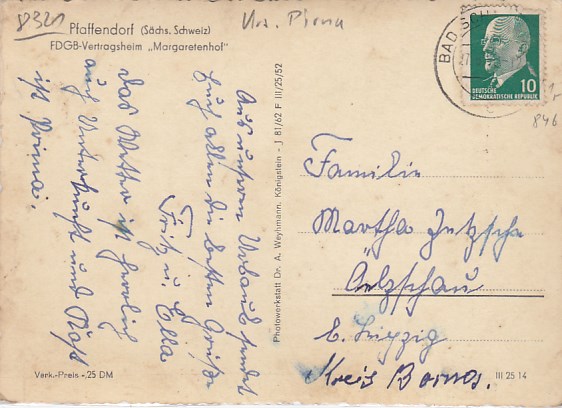 8321
Krs. Pirna
Pfaffendorf (Sächs. Schweiz)
FDGB-Vertragsheim „Margaretenhof"
BAD SCH
DEUTSCHE
DEMOKRATISCHE REPUBLIK
10
846
Aus unserm Urlaub sendet
Euch allen die besten Grüße
Fritz u. Ella
Das Wetter ist herrlich
auch Unterkunft und Kost
ist Prima.
Photowerkstatt Dr. A. Weyhmann, Königstein - J 81/62 F III/25/52
Familie
Martha Jetzsche
Oelzschau
b. Leipzig
Kreis Borna.
Verk.-Preis -,25 DM
III 25 14